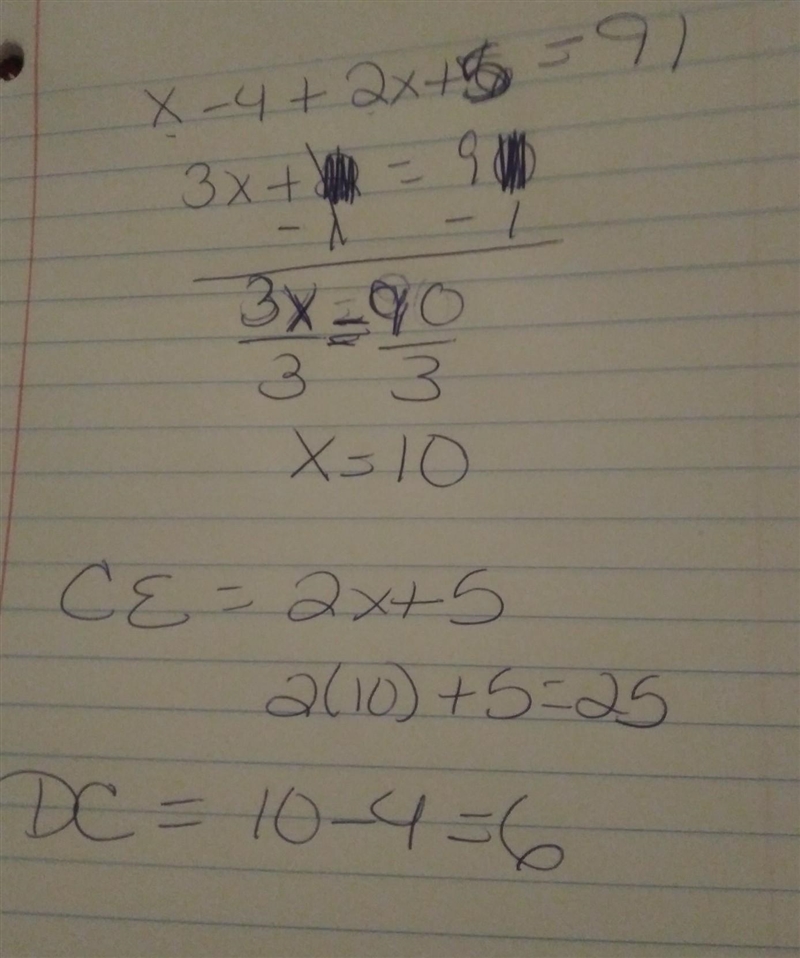 x - 4 + 2x + 5 = 91
3x + = 9
- 1 - 1
3x = 90
3 3
x = 10
CE = 2x + 5
2(10) + 5 = 25
DC = 10 - 4 = 6